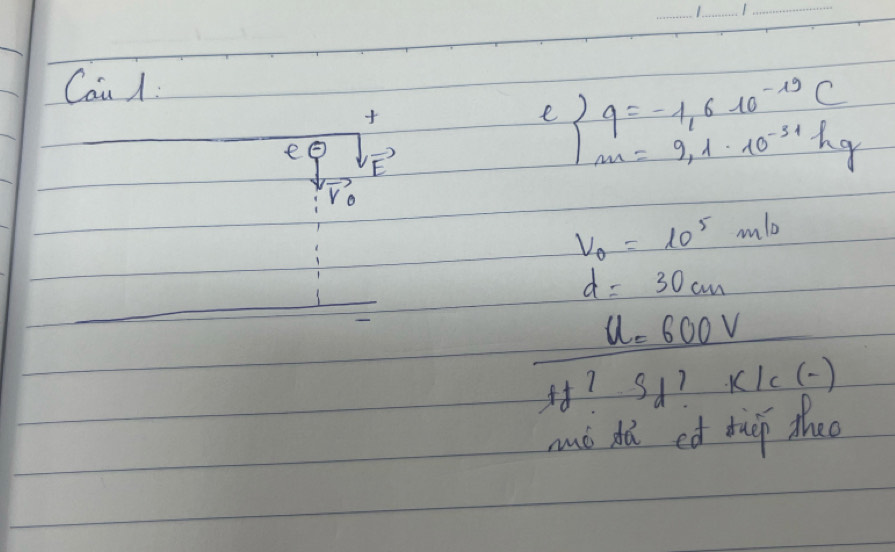 Câu 1:
+
e ⊖
E→
V₀→
−
e { q = −1,6 10⁻¹⁹ C
m = 9,1 · 10⁻³¹ kg
V₀ = 10⁵ m/s
d = 30 cm
U = 600 V
tđ? Sđ? K/c (−)
mô tả cđ tiếp theo